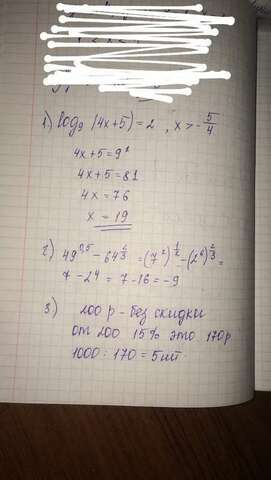 1) log₉ (4x+5) = 2 , x > -5/4
4x+5 = 9²
4x+5 = 81
4x = 76
x = 19
2) 49^0,5 - 64^(2/3) = (7²)^(1/2) - (2⁶)^(2/3) =
7 - 2⁴ = 7 - 16 = -9
3) 200 р - без скидки
от 200 15% это 170р
1000 : 170 = 5шт